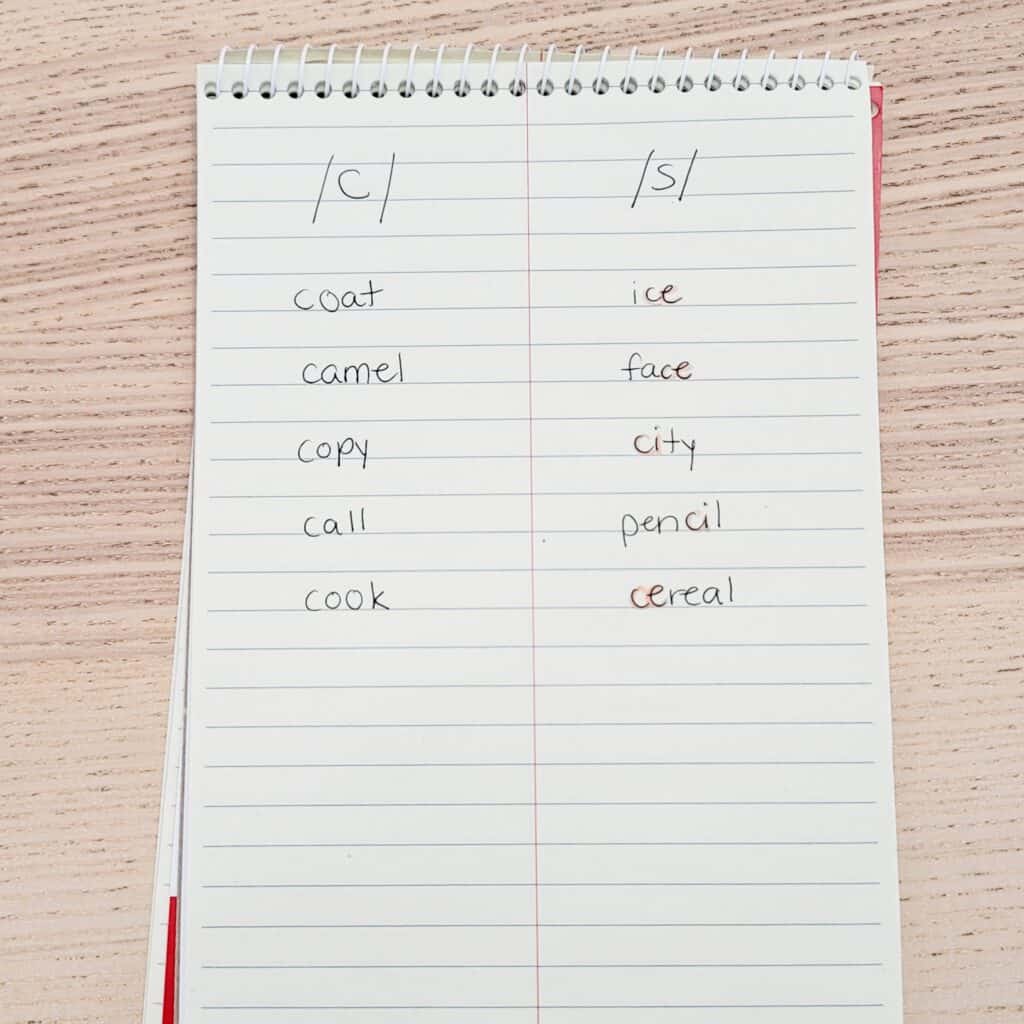 /C/ /S/
coat ice
camel face
copy city
call pencil
cook cereal